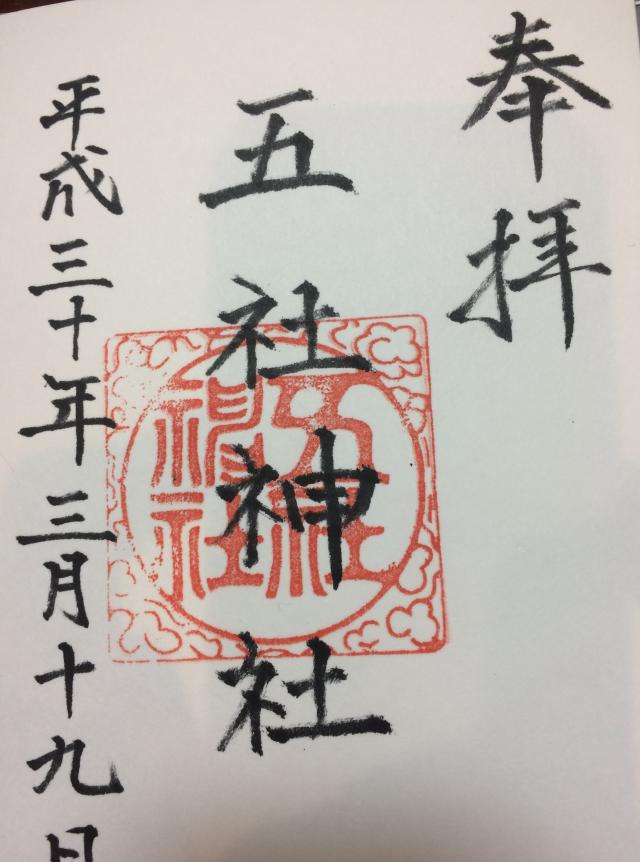 奉拝
五社神社
五社神社
平成三十年三月十九日